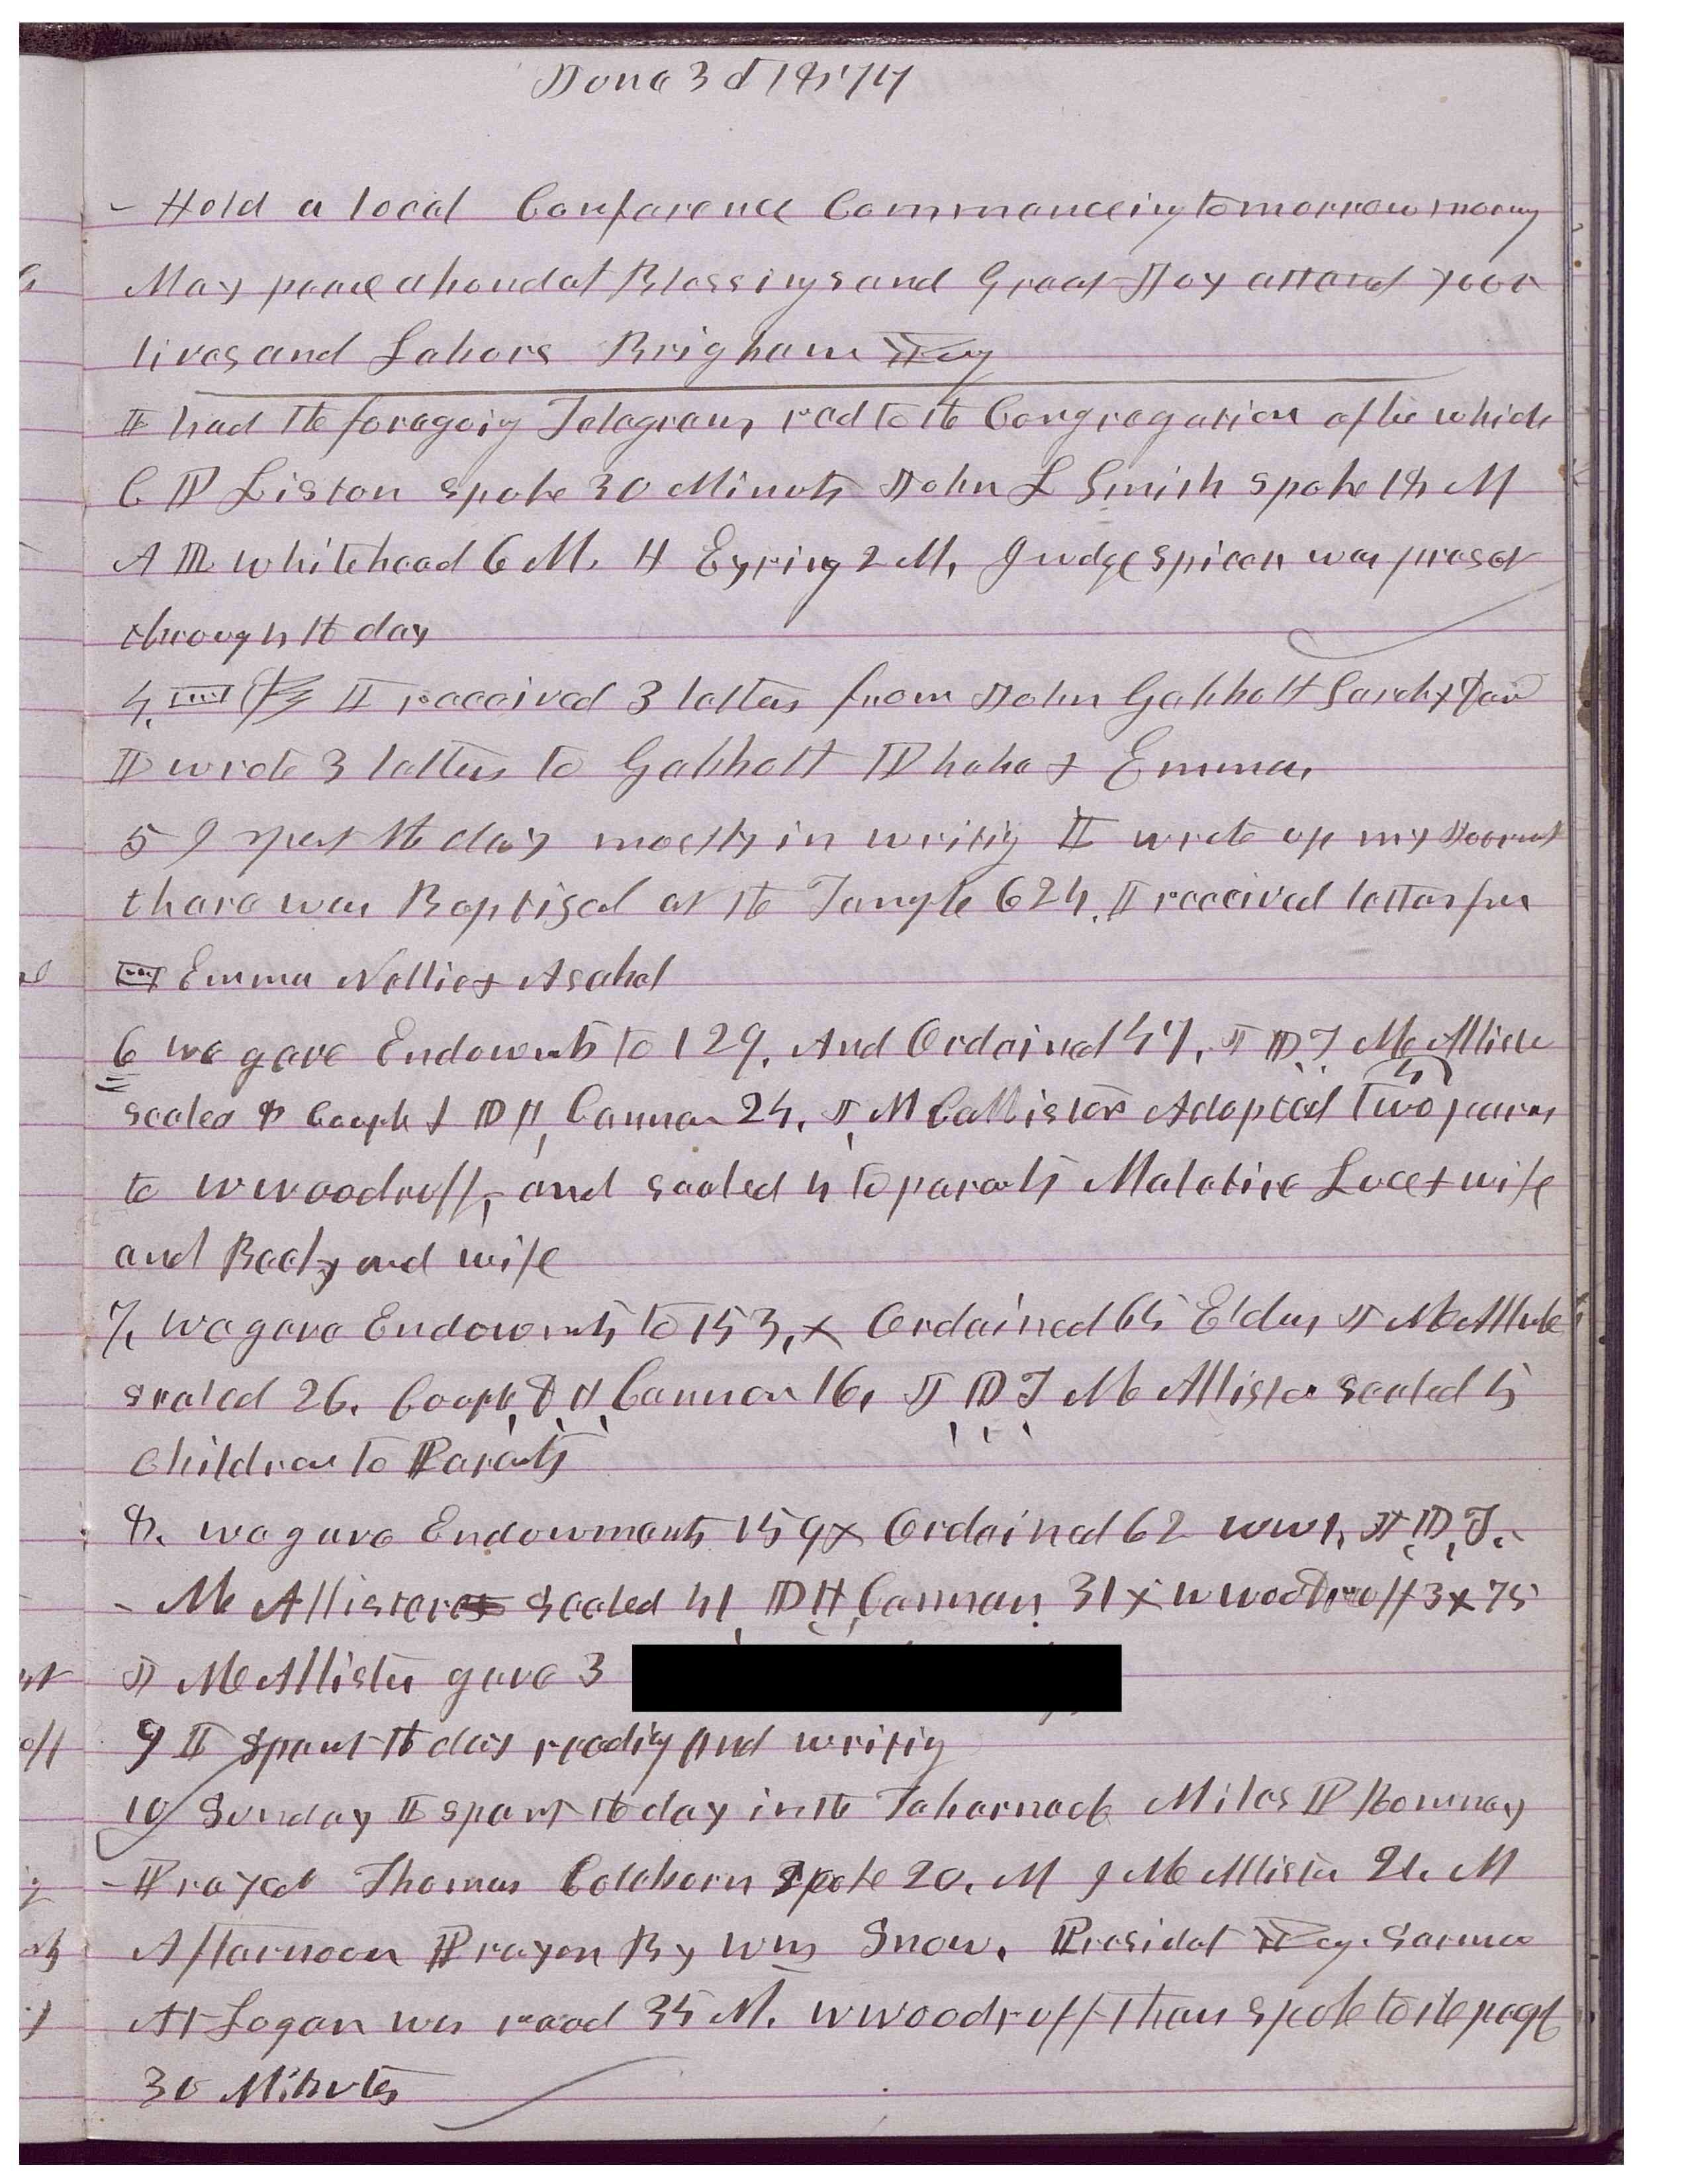 June 3d 1877
- Hold a local Conference Commenceing tomorrow morning
May peace abundat Blessings and Great Joy attend your
lives and Labors Brigham Young
I had the foregoing Telegram red to the Congregation after which
C P Liston spoke 30 Minuts John L Smith spoke 18 M
A R Whitehead 6 M. H Eyring 2 M, Judge Spicer was preset
through the day
4. I received 3 letters from John Gabbott Sarah &
I wrote 3 letters to Gabbott Phebe & Emma,
5 I spent the day mostly in writing I wrote up my Journal
there was Baptised at the Temple 624. I received letters from
Emma Nellie & Asahel
6 we gave Endowmets to 129. And Ordained 47, J D T McAllister
sealed 8 Coupls & D H Cannon 24. J McCallister Adopted Two pairs
to W Woodruff, and sealed 4 to parents Malatiah Luce & wife
and Beaty and wife
7, we gave Endowmets to 153, & Ordained 65 Elders J McAllister
sealed 26. Coupls, D H Cannon 16, J D T McAllister sealed 5
Children to Parents
8. we gave Endowments 159 & Ordained 62 W W 1, J D T.
- McAllister Sealed 41 D H Cannon 31 & W Woodruff 3 & 75
J McAllister gave 3
9 I spent the day reading And writing
10 Sunday I spent the day in the Tabernacle Miles P Romney
- Prayed Thomas Coldborn Spoke 20. M J McAllister 21. M
Afternoon Prayer By Wm Snow. Presidet Young. Sermon
At Logan was read 35 M. W Woodruff Then spoke to the people
30 Minutes